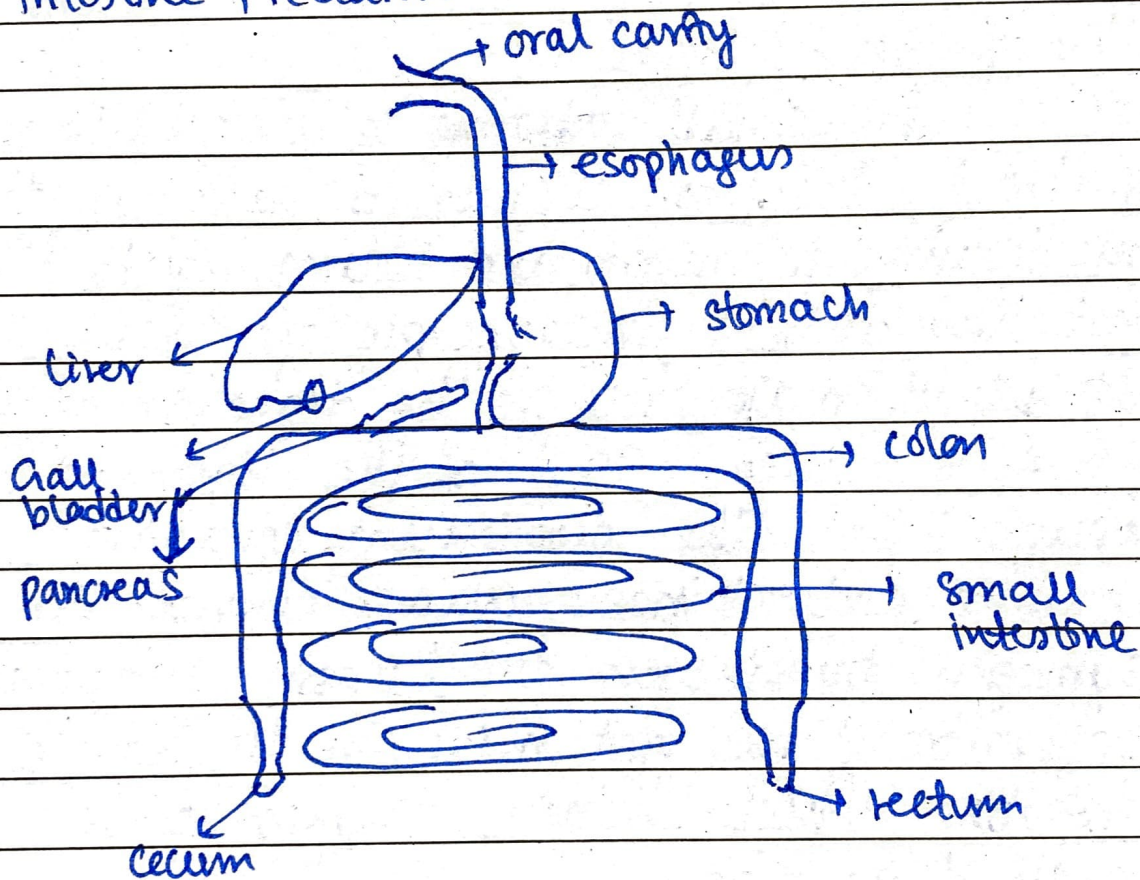 oral cavity
esophagus
stomach
liver
colon
Gall
bladder
pancreas
small
intestine
rectum
cecum